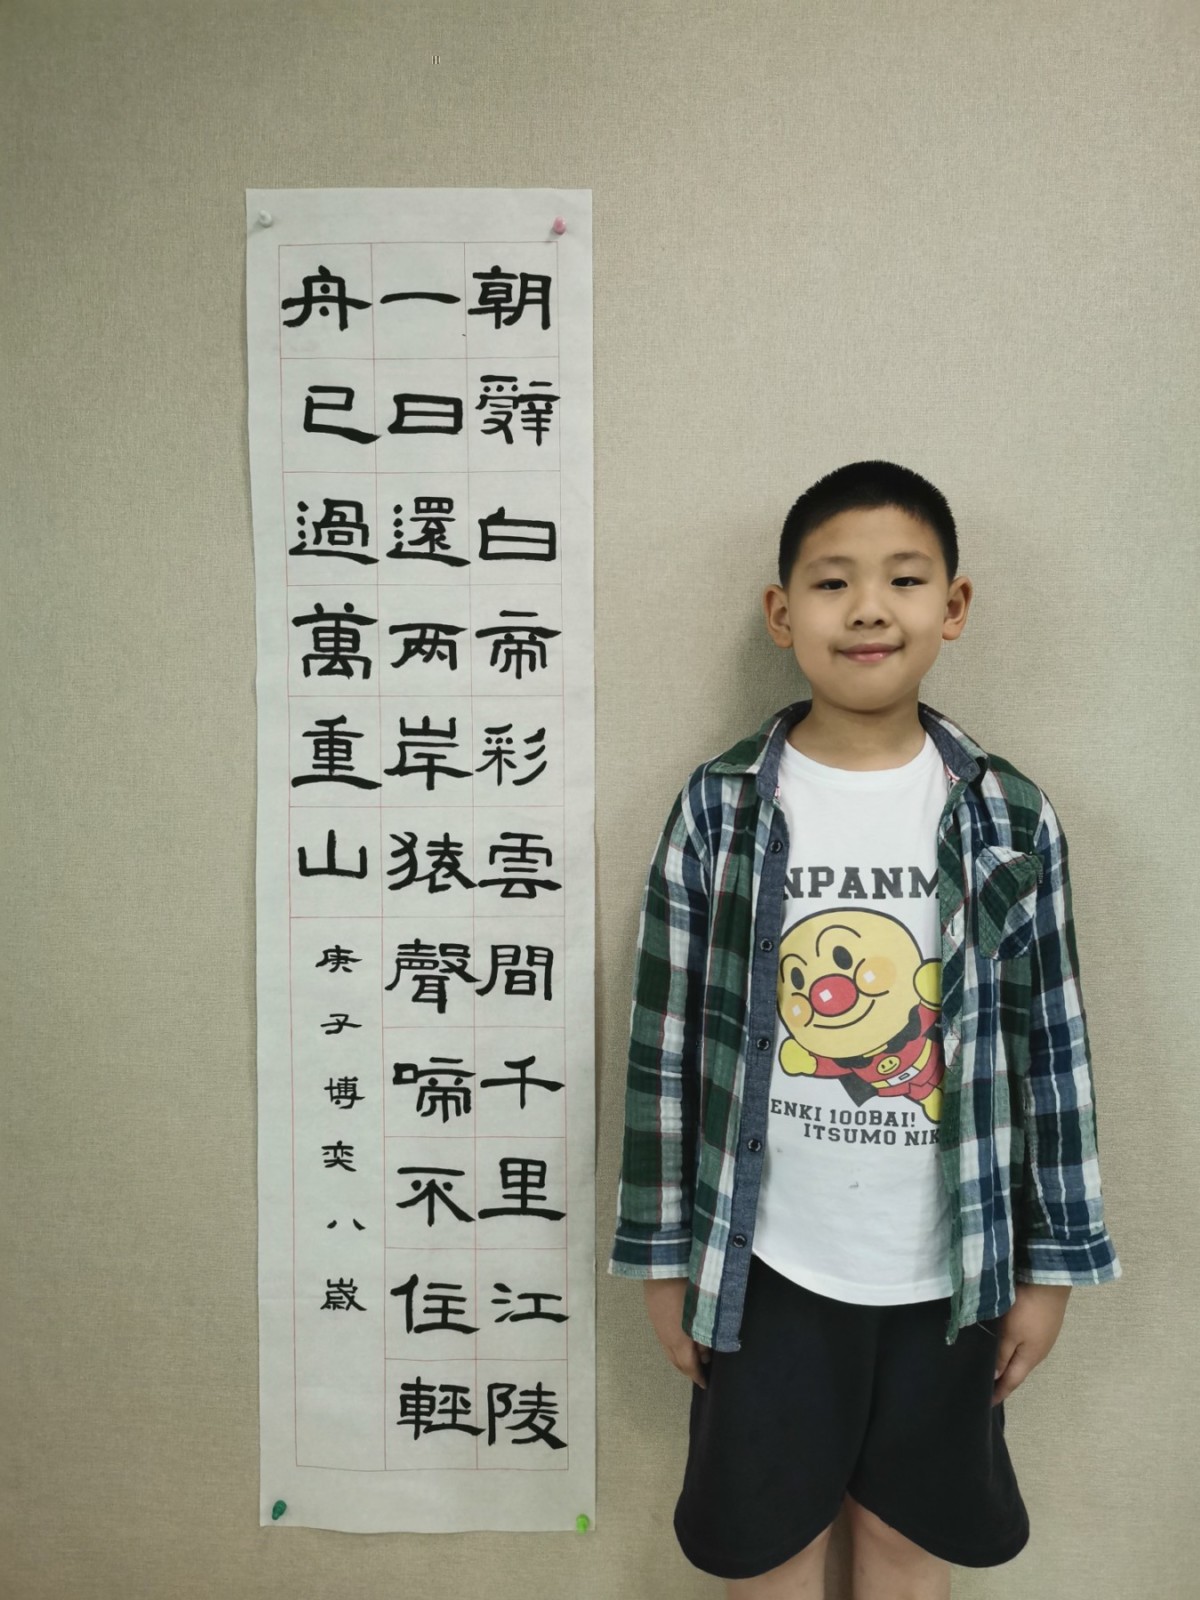 朝辤白帝彩雲間千里江陵
一日還两岸猿聲啼不住輕
舟已過萬重山
庚子博奕八歲
NPANM
ENKI 100BAI!
ITSUMO NIK